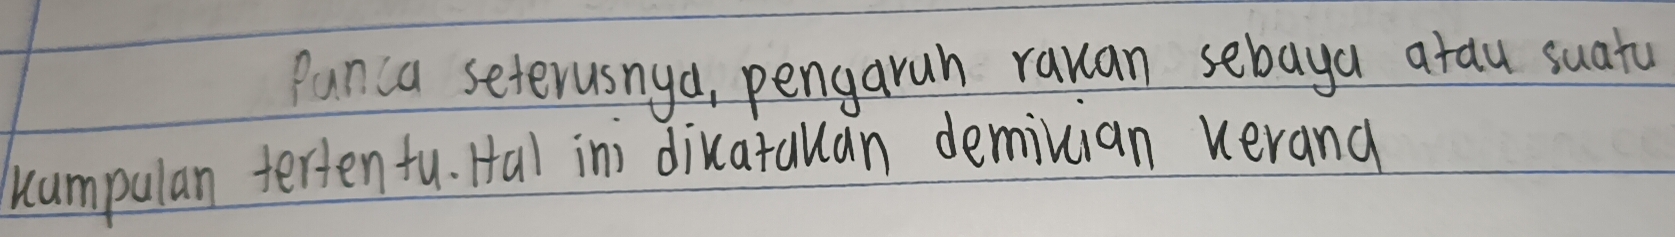 Punca seterusnya, pengaruh rakan sebaya atau suatu
kumpulan tertentu. Hal ini dikatakan demikian kerana